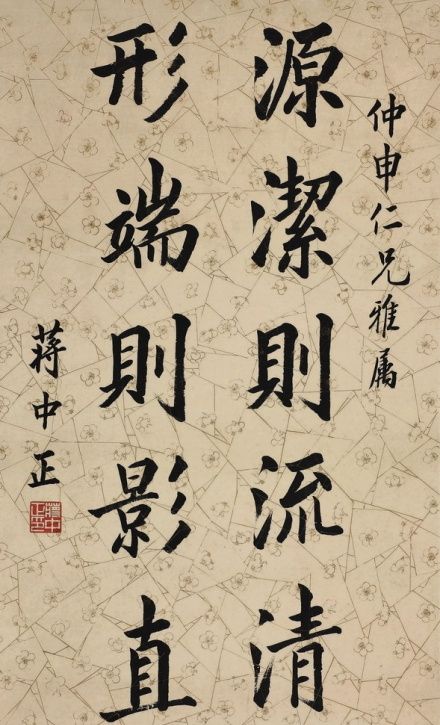 仲申仁兄雅属
源潔則流清
形端則影直
蔣中正
蔣中正印